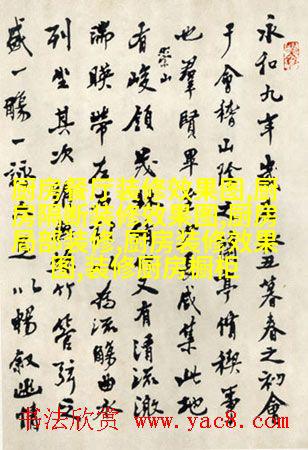 永和九年歲丑暮春之初會
于會稽山陰之蘭亭脩禊事
也羣賢畢咸集此地
有崇山峻領茂林又有清流激
湍暎帶左右為流觴曲水
列坐其次竹管弦之
盛一觴一詠以暢敘幽情
厨房餐厅装修效果图,厨
房隔断装修效果图,厨房
局部装修,厨房装修效果
图,装修厨房橱柜
书法欣赏 www.yac8.com